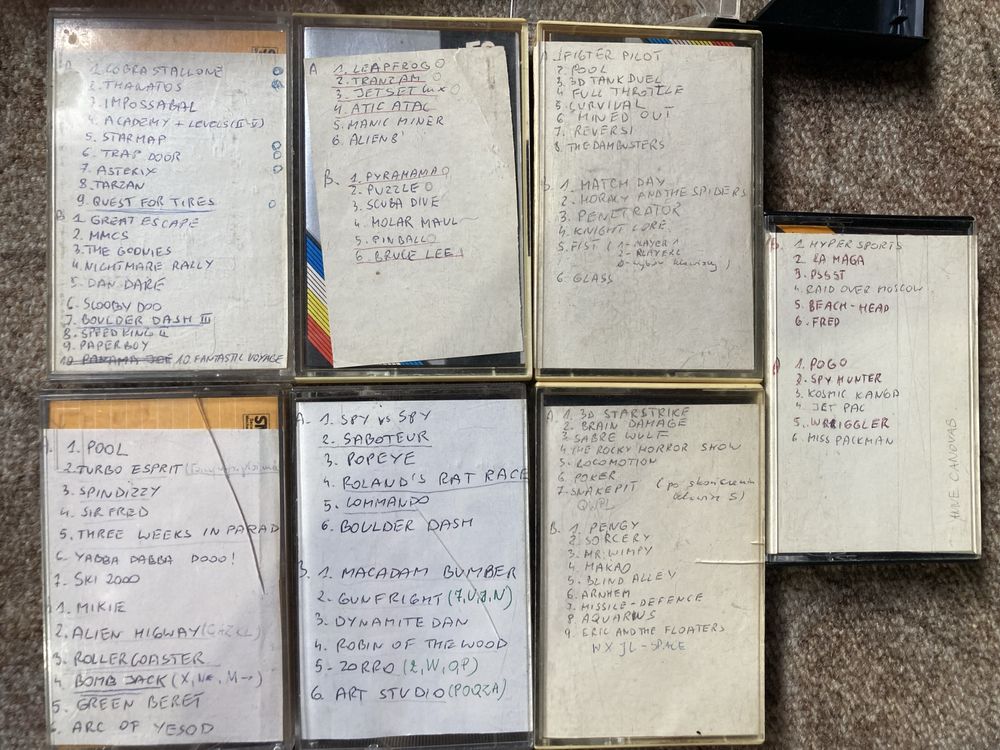 A 1. COBRA STALLONE
2. THANATOS
3. IMPOSSABAL
4. ACADEMY + LEVELS (II-V)
5. STARMAP
6. TRAP DOOR
7. ASTERIX
8. TARZAN
9. QUEST FOR TIRES
B 1. GREAT ESCAPE
2. MMCS
3. THE GOONIES
4. NIGHTMARE RALLY
5. DAN DARE
6. SCOOBY DOO
7. BOULDER DASH III
8. SPEED KING 2
9. PAPERBOY
10 PANAMA JOE 10. FANTASTIC VOYAGE
A 1. LEAPFROG
2. TRANZAM
3. JETSET
4. ATIC ATAC
5. MANIC MINER
6. ALIEN8
B. 1. PYRAMAMA
2. PUZZLE
3. SCUBA DIVE
4. MOLAR MAUL
5. PINBALL
6. BRUCE LEE
A 1. FIGTER PILOT
2. POOL
3. 3D TANK DUEL
4. FULL THROTTLE
5. SURVIVAL
6. MINED OUT
7. REVERSI
8. THE DAMBUSTERS
B. 1. MATCH DAY
2. HORACY AND THE SPIDERS
3. PENETRATOR
4. KNIGHT LORE
5. FIST (1- PLAYER 1
2- PLAYER 2
0- wybór klawiszy)
6. GLASS
B. 1. HYPER SPORTS
2. LA MAGA
3. PSSST
4. RAID OVER MOSCOW
5. BEACH-HEAD
6. FRED
A 1. POGO
2. SPY HUNTER
3. KOSMIC KANGA
4. JET PAC
5. WRIGGLER
6. MISS PACKMAN
1. POOL
2. TURBO ESPRIT
3. SPINDIZZY
4. SIR FRED
5. THREE WEEKS IN PARAD
6. YABBA DABBA DOOO!
7. SKI 2000
1. MIKIE
2. ALIEN HIGWAY
3. ROLLERCOASTER
4. BOMB JACK
5. GREEN BERET
6. ARC OF YESOD
A. 1. SPY VS SPY
2. SABOTEUR
3. POPEYE
4. ROLAND'S RAT RACE
5. COMMANDO
6. BOULDER DASH
B. 1. MACADAM BUMBER
2. GUNFRIGHT (7,U,J,N)
3. DYNAMITE DAN
4. ROBIN OF THE WOOD
5- ZORRO (2,W,O,P)
6. ART STUDIO (POQZA)
A 1. 3D STARSTRIKE
2. BRAIN DAMAGE
3. SABRE WULF
4. THE ROCKY HORROR SHOW
5. LOCOMOTION
6. POKER
7. SNAKEPIT (po skończeniu
klawisz S)
B. 1. PENGY
2. SORCERY
3. MR. WIMPY
4. MAKAO
5. BLIND ALLEY
6. ARNHEM
7. MISSILE-DEFENCE
8 AQUARIUS
9. ERIC AND THE FLOATERS
WX JL - SPACE